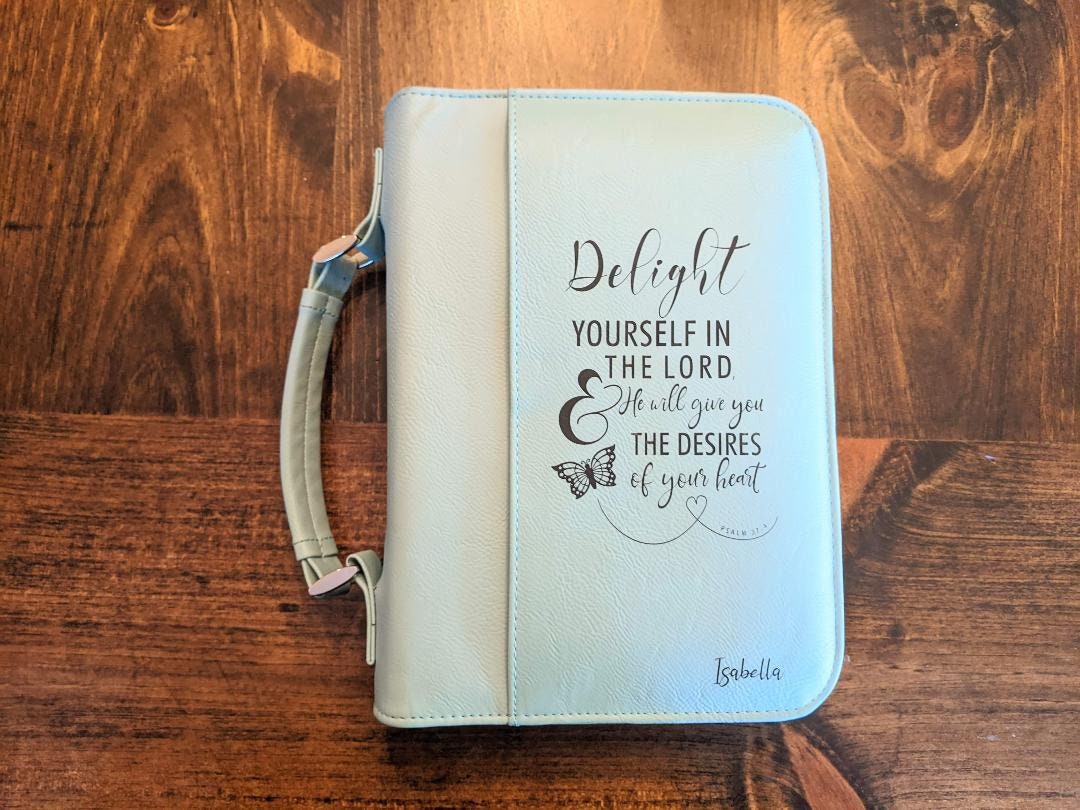 Delight
YOURSELF IN
THE LORD,
& He will give you
THE DESIRES
of your heart
PSALM 37:4
Isabella